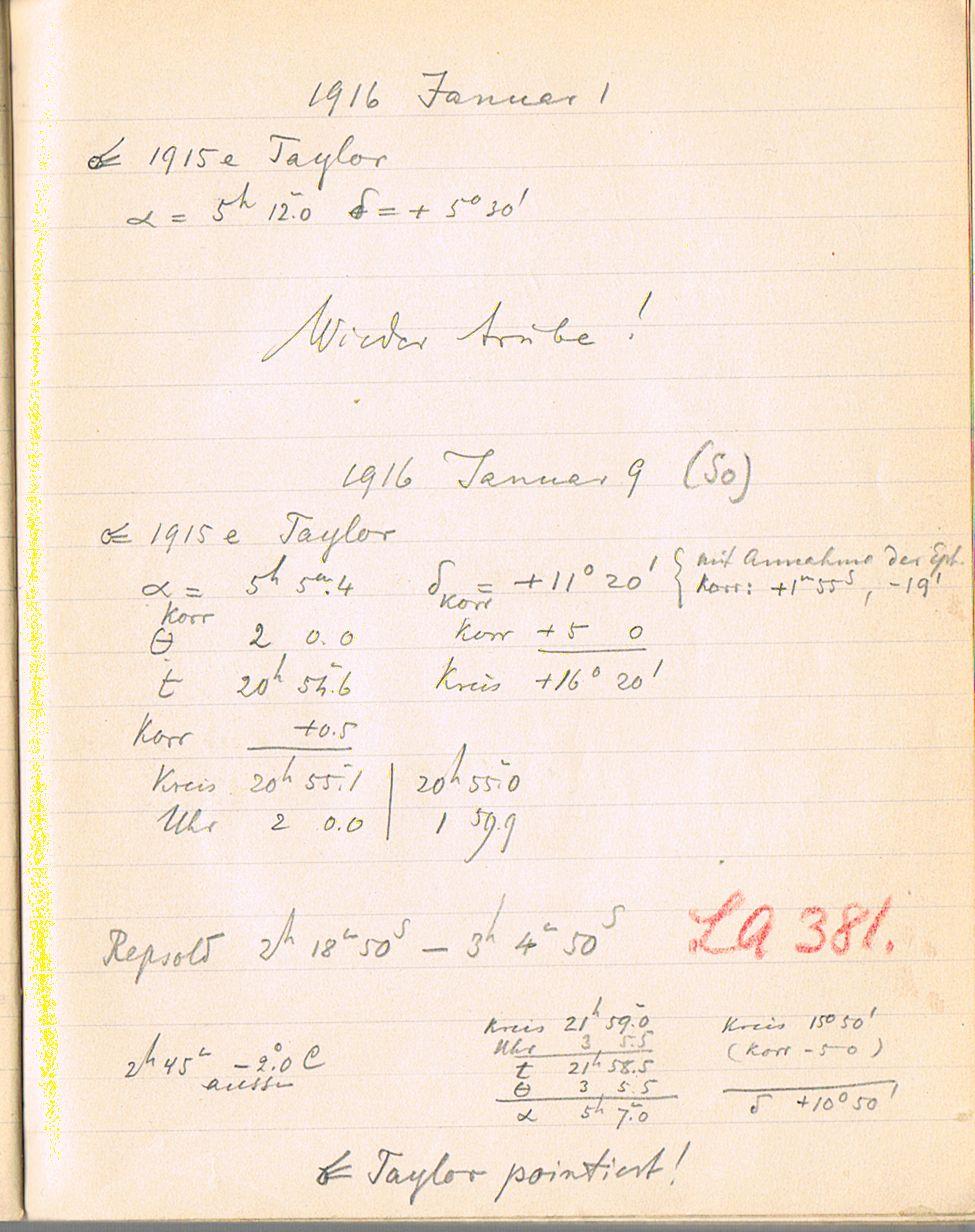 1916 Januar 1
☄ 1915 e Taylor
α = 5h 12m.0 δ = + 5° 30'
Wieder trübe!
1916 Januar 9 (So)
☄ 1915 e Taylor
α Korr = 5h 5m.4 δ Korr = +11° 20' { mit Annahme der Eph. Korr: +1m 55s, -19'
Θ 2 0.0 Korr +5 0
t 20h 54m.6 Kreis +16° 20'
Korr +0.5
Kreis 20h 55m.1 | 20h 55m.0
Uhr 2 0.0 | 1 59.9
Repsold 2h 18m 50s — 3h 4m 50s LA 381.
Kreis 21h 59m.0 Kreis 15° 50'
Uhr 3 5.5 (Korr -5 0)
2h 45m -2°.0 C t 21h 58.5
aussen Θ 3 5.5
α 5h 7m.0 δ +10° 50'
☄ Taylor pointiert!